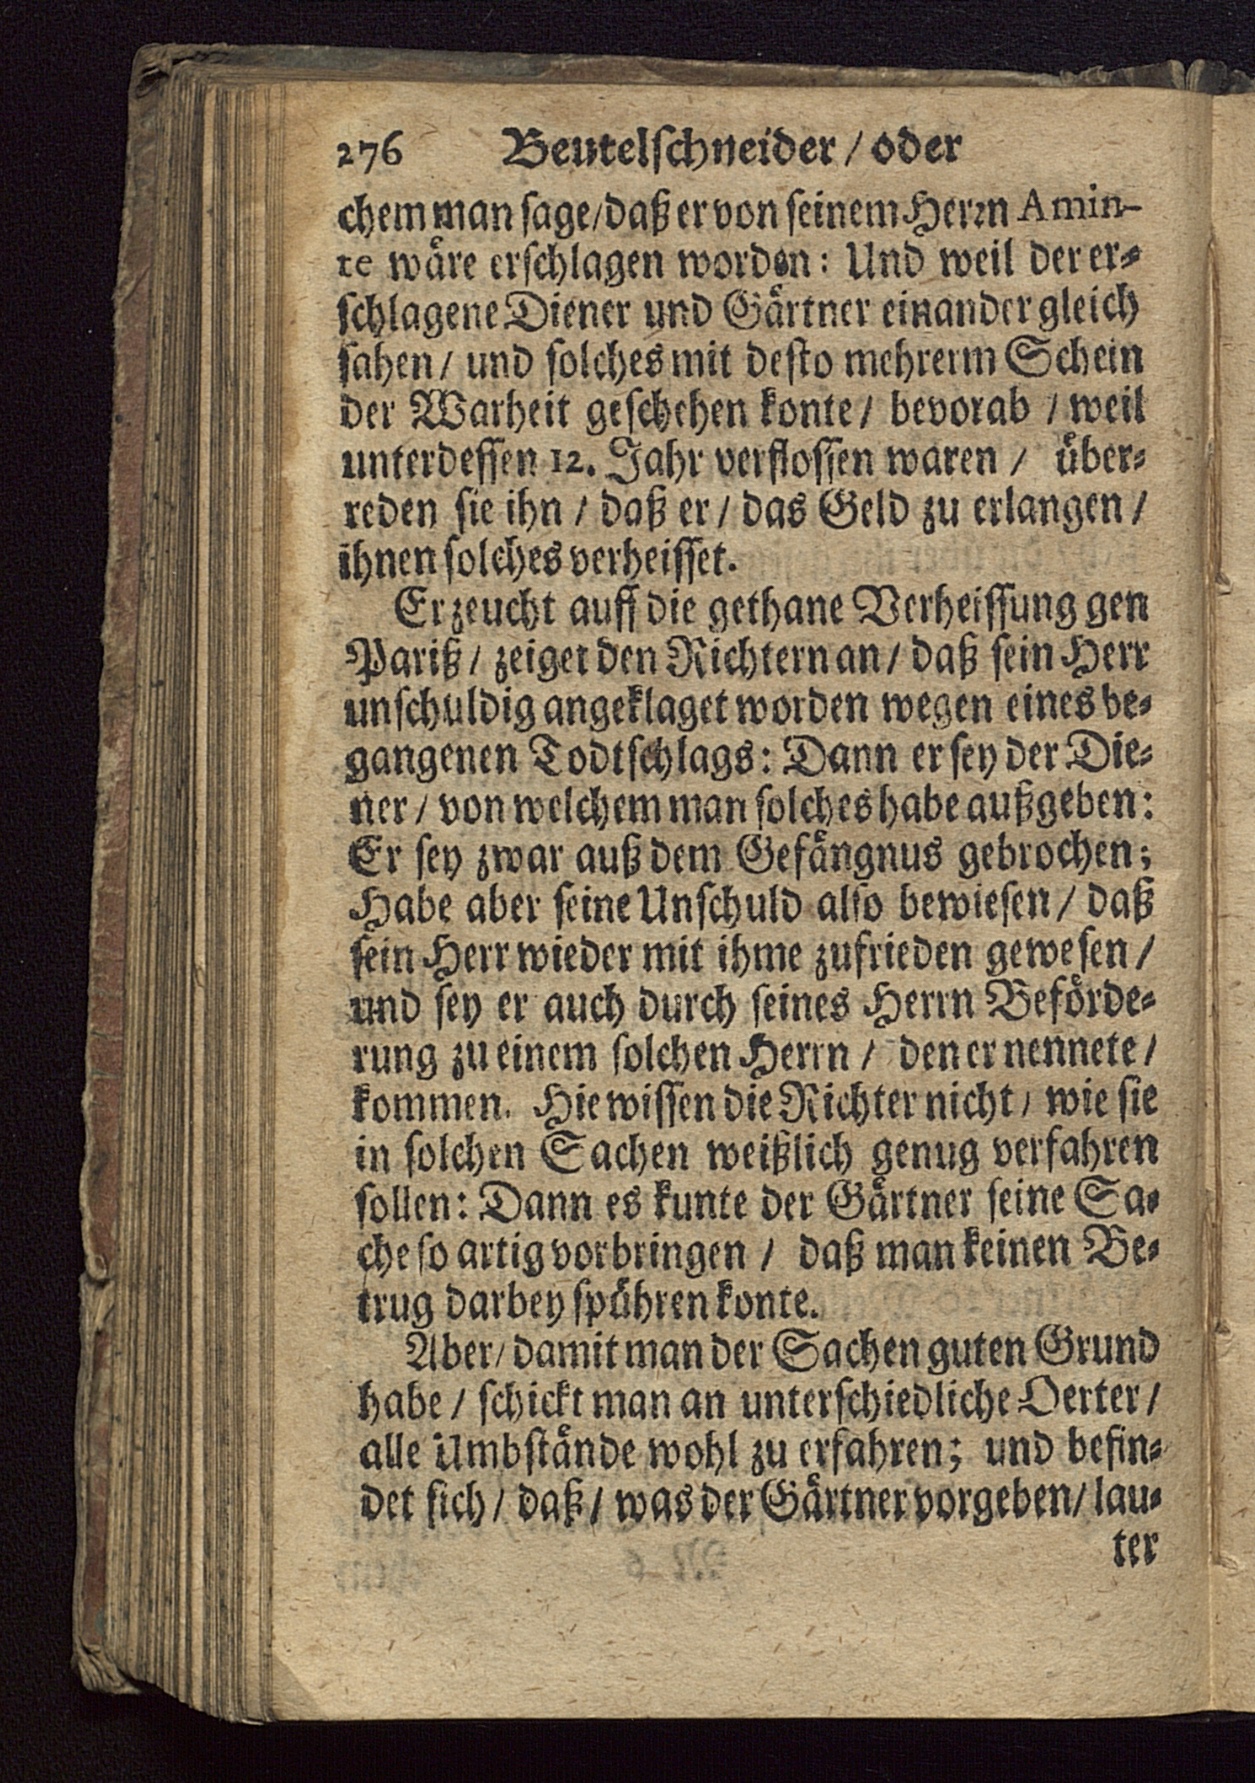 276 Beutelschneider / oder
chem man sage / daß er von seinem Herrn Amin-
te wäre erschlagen worden: Und weil der er-
schlagene Diener und Gärtner einander gleich
sahen / und solches mit desto mehrerm Schein
der Warheit geschehen konte / bevorab / weil
unterdessen 12. Jahr verflossen waren / über-
reden sie ihn / daß er / das Geld zu erlangen /
ihnen solches verheisset.
Er zeucht auff die gethane Verheissung gen
Pariß / zeiget den Richtern an / daß sein Herr
unschuldig angeklaget worden wegen eines be-
gangenen Todtschlags: Dann er sey der Die-
ner / von welchem man solches habe außgeben:
Er sey zwar auß dem Gefängnus gebrochen;
Habe aber seine Unschuld also bewiesen / daß
sein Herr wieder mit ihme zufrieden gewesen /
und sey er auch durch seines Herrn Beförde-
rung zu einem solchen Herrn / den er nennete /
kommen. Hie wissen die Richter nicht / wie sie
in solchen Sachen weißlich genug verfahren
sollen: Dann es kunte der Gärtner seine Sa-
che so artig vorbringen / daß man keinen Be-
trug darbey spühren konte.
Aber / damit man der Sachen guten Grund
habe / schickt man an unterschiedliche Oerter /
alle Umbstände wohl zu erfahren; und befin-
det sich / daß / was der Gärtner vorgeben / lau-
ter